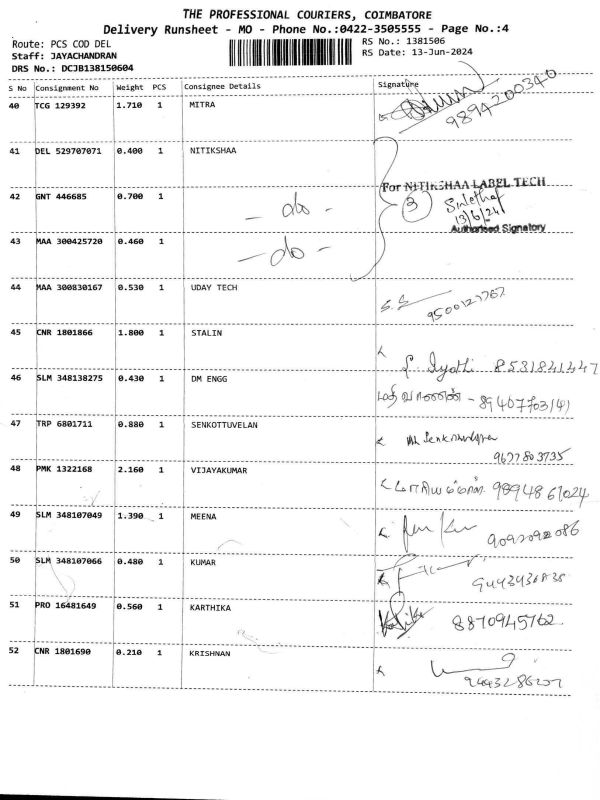 THE PROFESSIONAL COURIERS, COIMBATORE
Delivery Runsheet - MO - Phone No.:0422-3505555 - Page No.:4
Route: PCS COD DEL
RS No.: 1381506
Staff: JAYACHANDRAN
RS Date: 13-Jun-2024
DRS No.: DCJB138150604
S No Consignment No Weight PCS Consignee Details Signature
40 TCG 129392 1.710 1 MITRA
9894200340
41 DEL 529707071 0.400 1 NITIKSHAA
For NITIKSHAA LABEL TECH
42 GNT 446685 0.700 1 - do -
3
13/6/24
Authorised Signatory
43 MAA 300425720 0.460 1 - do -
44 MAA 300830167 0.530 1 UDAY TECH
S.S
45 CNR 1801866 1.800 1 STALIN
Jyothi 8531841447
46 SLM 348138275 0.430 1 DM ENGG
மதிவாணன் -
47 TRP 6801711 0.880 1 SENKOTTUVELAN
9677803735
48 PMK 1322168 2.160 1 VIJAYAKUMAR
9894861024
49 SLM 348107049 1.390 1 MEENA
9092092086
50 SLM 348107066 0.480 1 KUMAR
51 PRO 16481649 0.560 1 KARTHIKA
8870945762
52 CNR 1801690 0.210 1 KRISHNAN